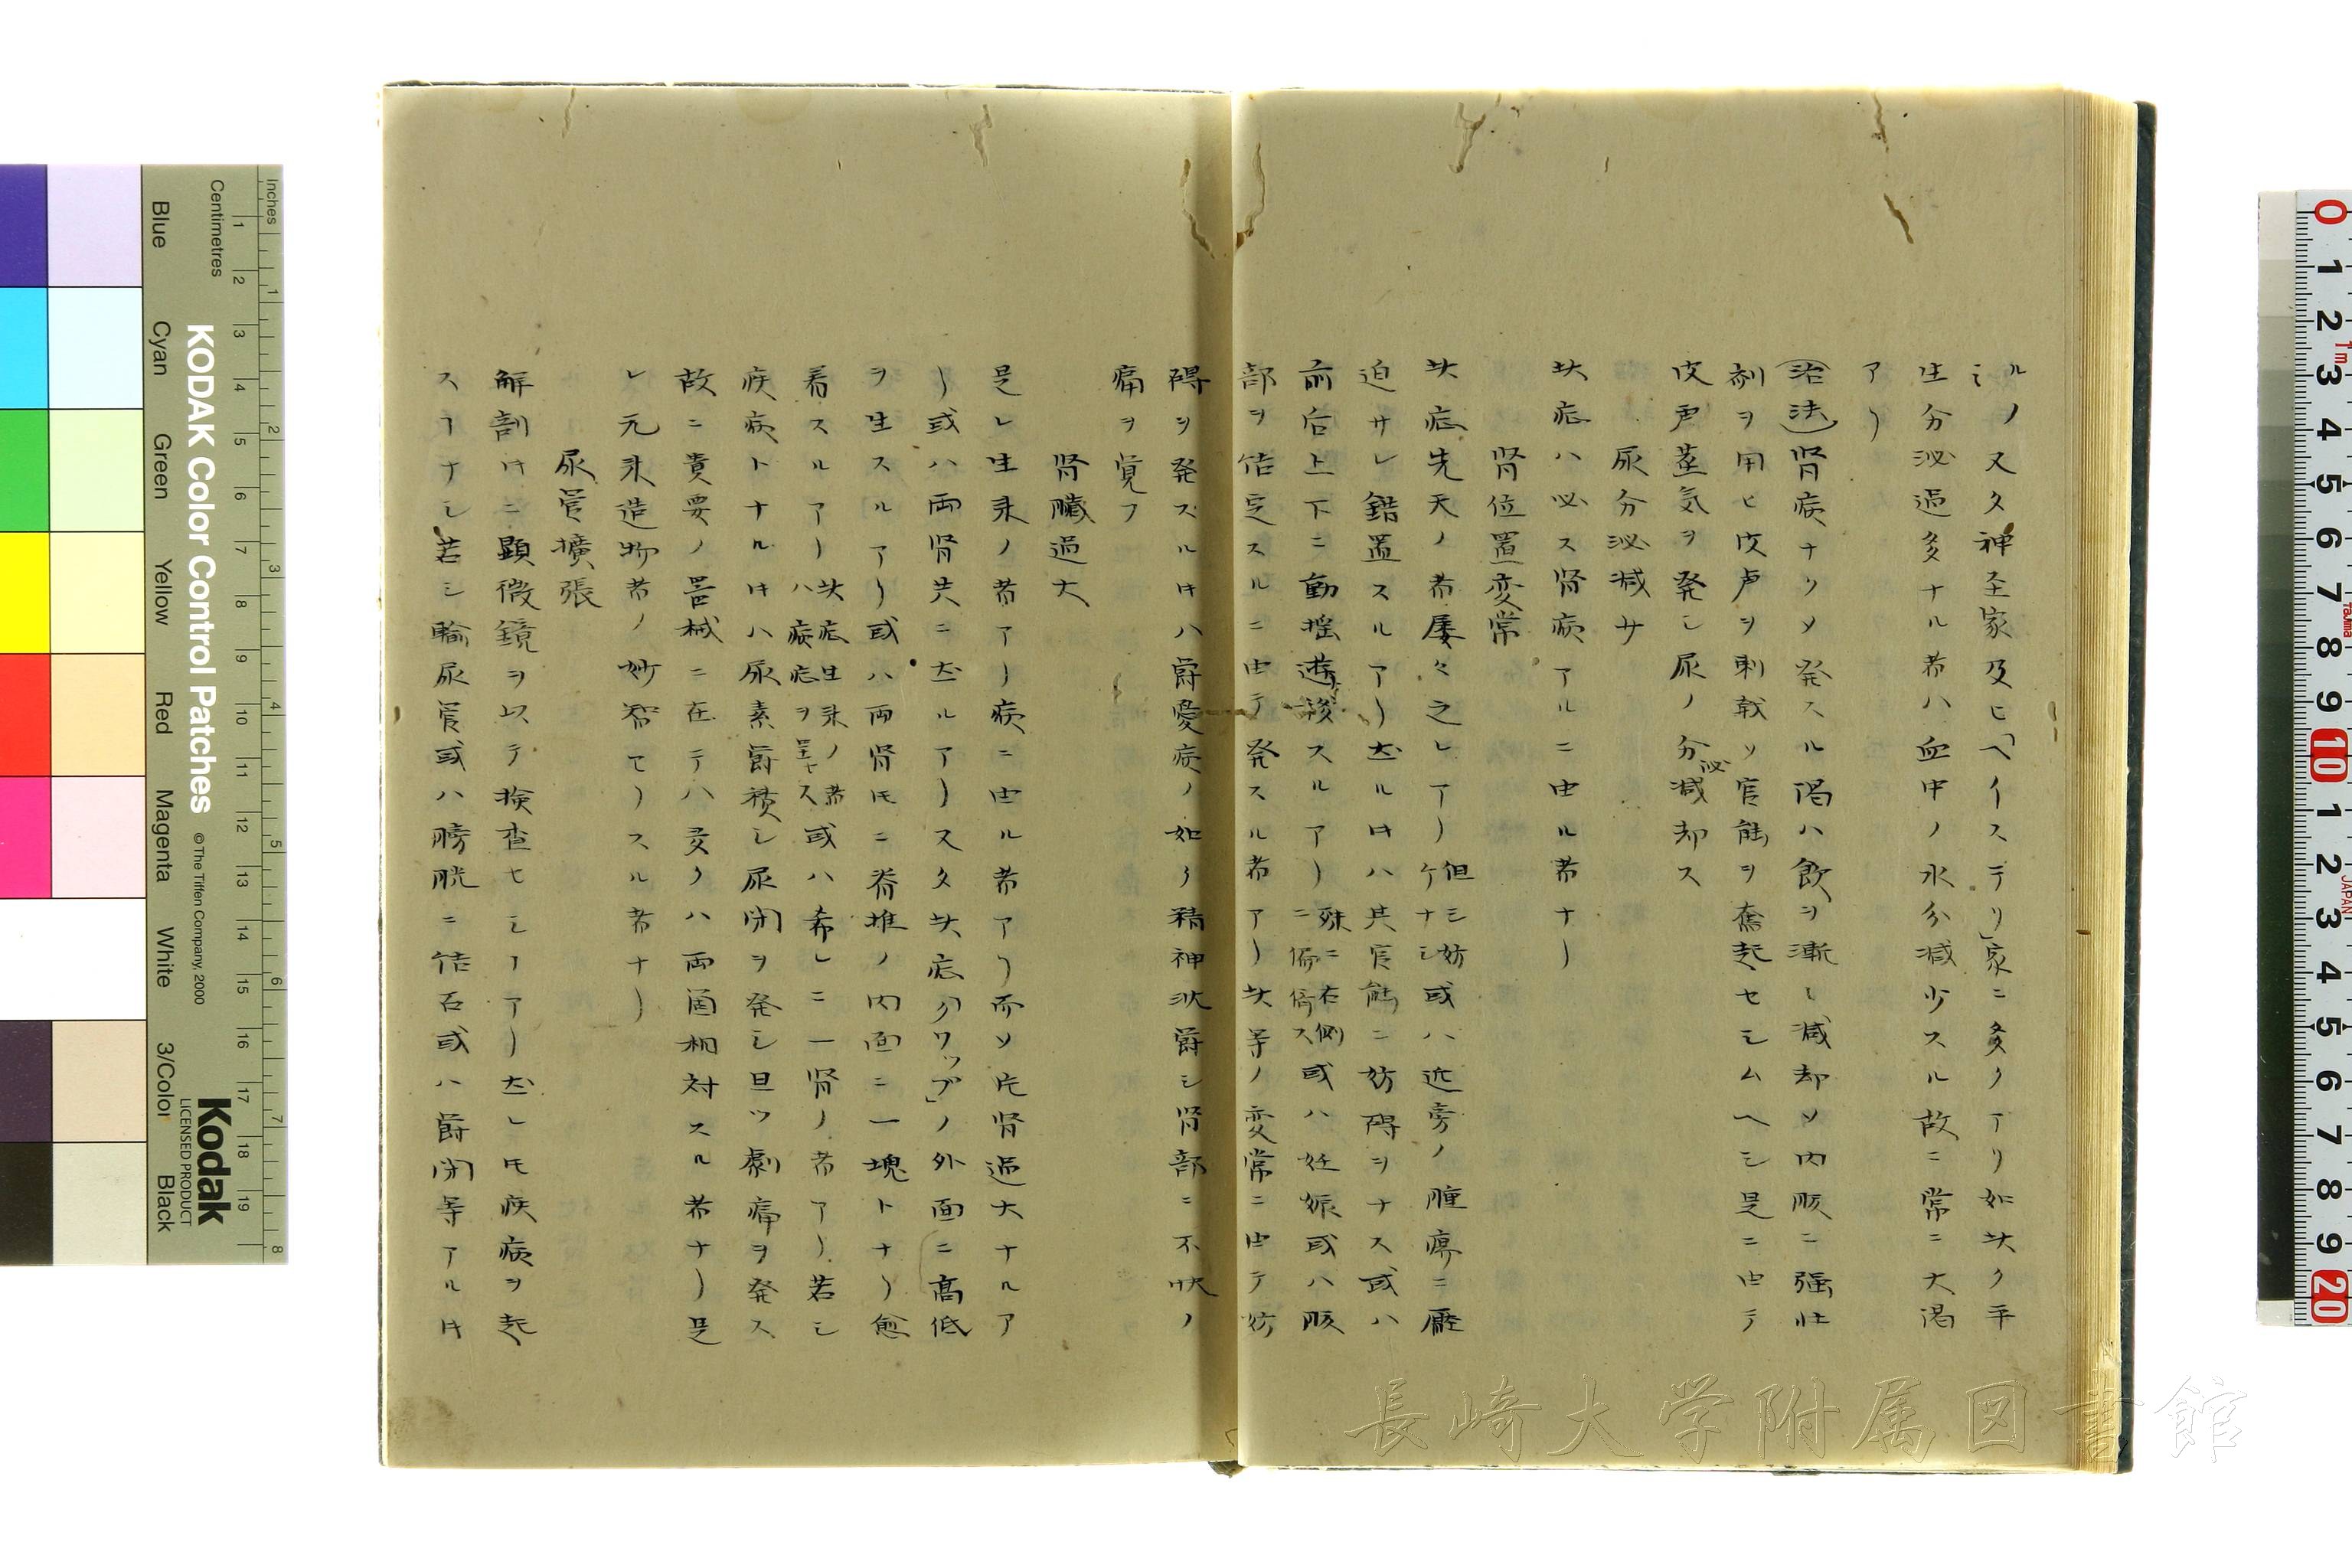 ルノミ又タ神圣家及ヒ「ヘイステリ」家ニ多クアリ如㳄ク平
生分泌過多ナル者ハ血中ノ水分減少スル故ニ常ニ大渇
アリ
治法 肾病ナクメ発スル渇ハ飲ヲ漸々減却ソ内服ニ强壮
剤ヲ用ヒ皮膚ヲ刺戟ソ官能ヲ奮起セシムヘシ是ニ由テ
皮膚蒸気ヲ発シ尿ノ分泌減却ス
尿分泌減少
此症ハ必ス肾病アルニ由ル者ナリ
肾位置変常
此症先天ノ者屡々之レアリ但シ妨ケナシ或ハ近旁ノ腫瘍ニ壓
迫サレ錯置スルアリ然ルキハ其官能ニ妨碍ヲナス或ハ
前后上下ニ動揺遊移スルアリ殊ニ右側ニ偏倚ス或ハ妊娠或ハ服
部ヲ結定スルニ由テ発スル者アリ此等ノ変常ニ由テ妨
碍ヲ発スルキハ爵憂病ノ如ク精神沈爵シ肾部ニ不快ノ
痛ヲ覚フ
肾臓過大
是レ生来ノ者アリ病ニ由ル者アリ而ソ片肾過大ナルア
リ或ハ両肾共ニ然ルアリ又タ此症「クワップ」ノ外面ニ高低
ヲ生スルアリ或ハ両肾氏ニ脊椎ノ内面ニ一塊トナリ癒
着スルアリ此症生来ノ者ハ病症ヲ呈セス或ハ希レニ一肾ノ者アリ若シ
疾病トナルキハ尿素爵積シ尿閉ヲ発シ且ツ劇痛ヲ発ス
故ニ貴要ノ器械ニ在テハ多クハ両箇相対スル者ナリ是
レ元来造物者ノ妙智てリスル者ナリ
尿管擴張
解剖キニ顕微鏡ヲ以テ検査セシヿアリ然レ氏疾病ヲ起
スヿナシ若シ輸尿管或ハ膀胱ニ結石或ハ爵閉等アルキ
KODAK Color Control Patches
© The Tiffen Company, 2000
Kodak
LICENSED PRODUCT
Inches
Centimetres
Blue Cyan Green Yellow Red Magenta White 3/Color Black
長崎大学附属図書館